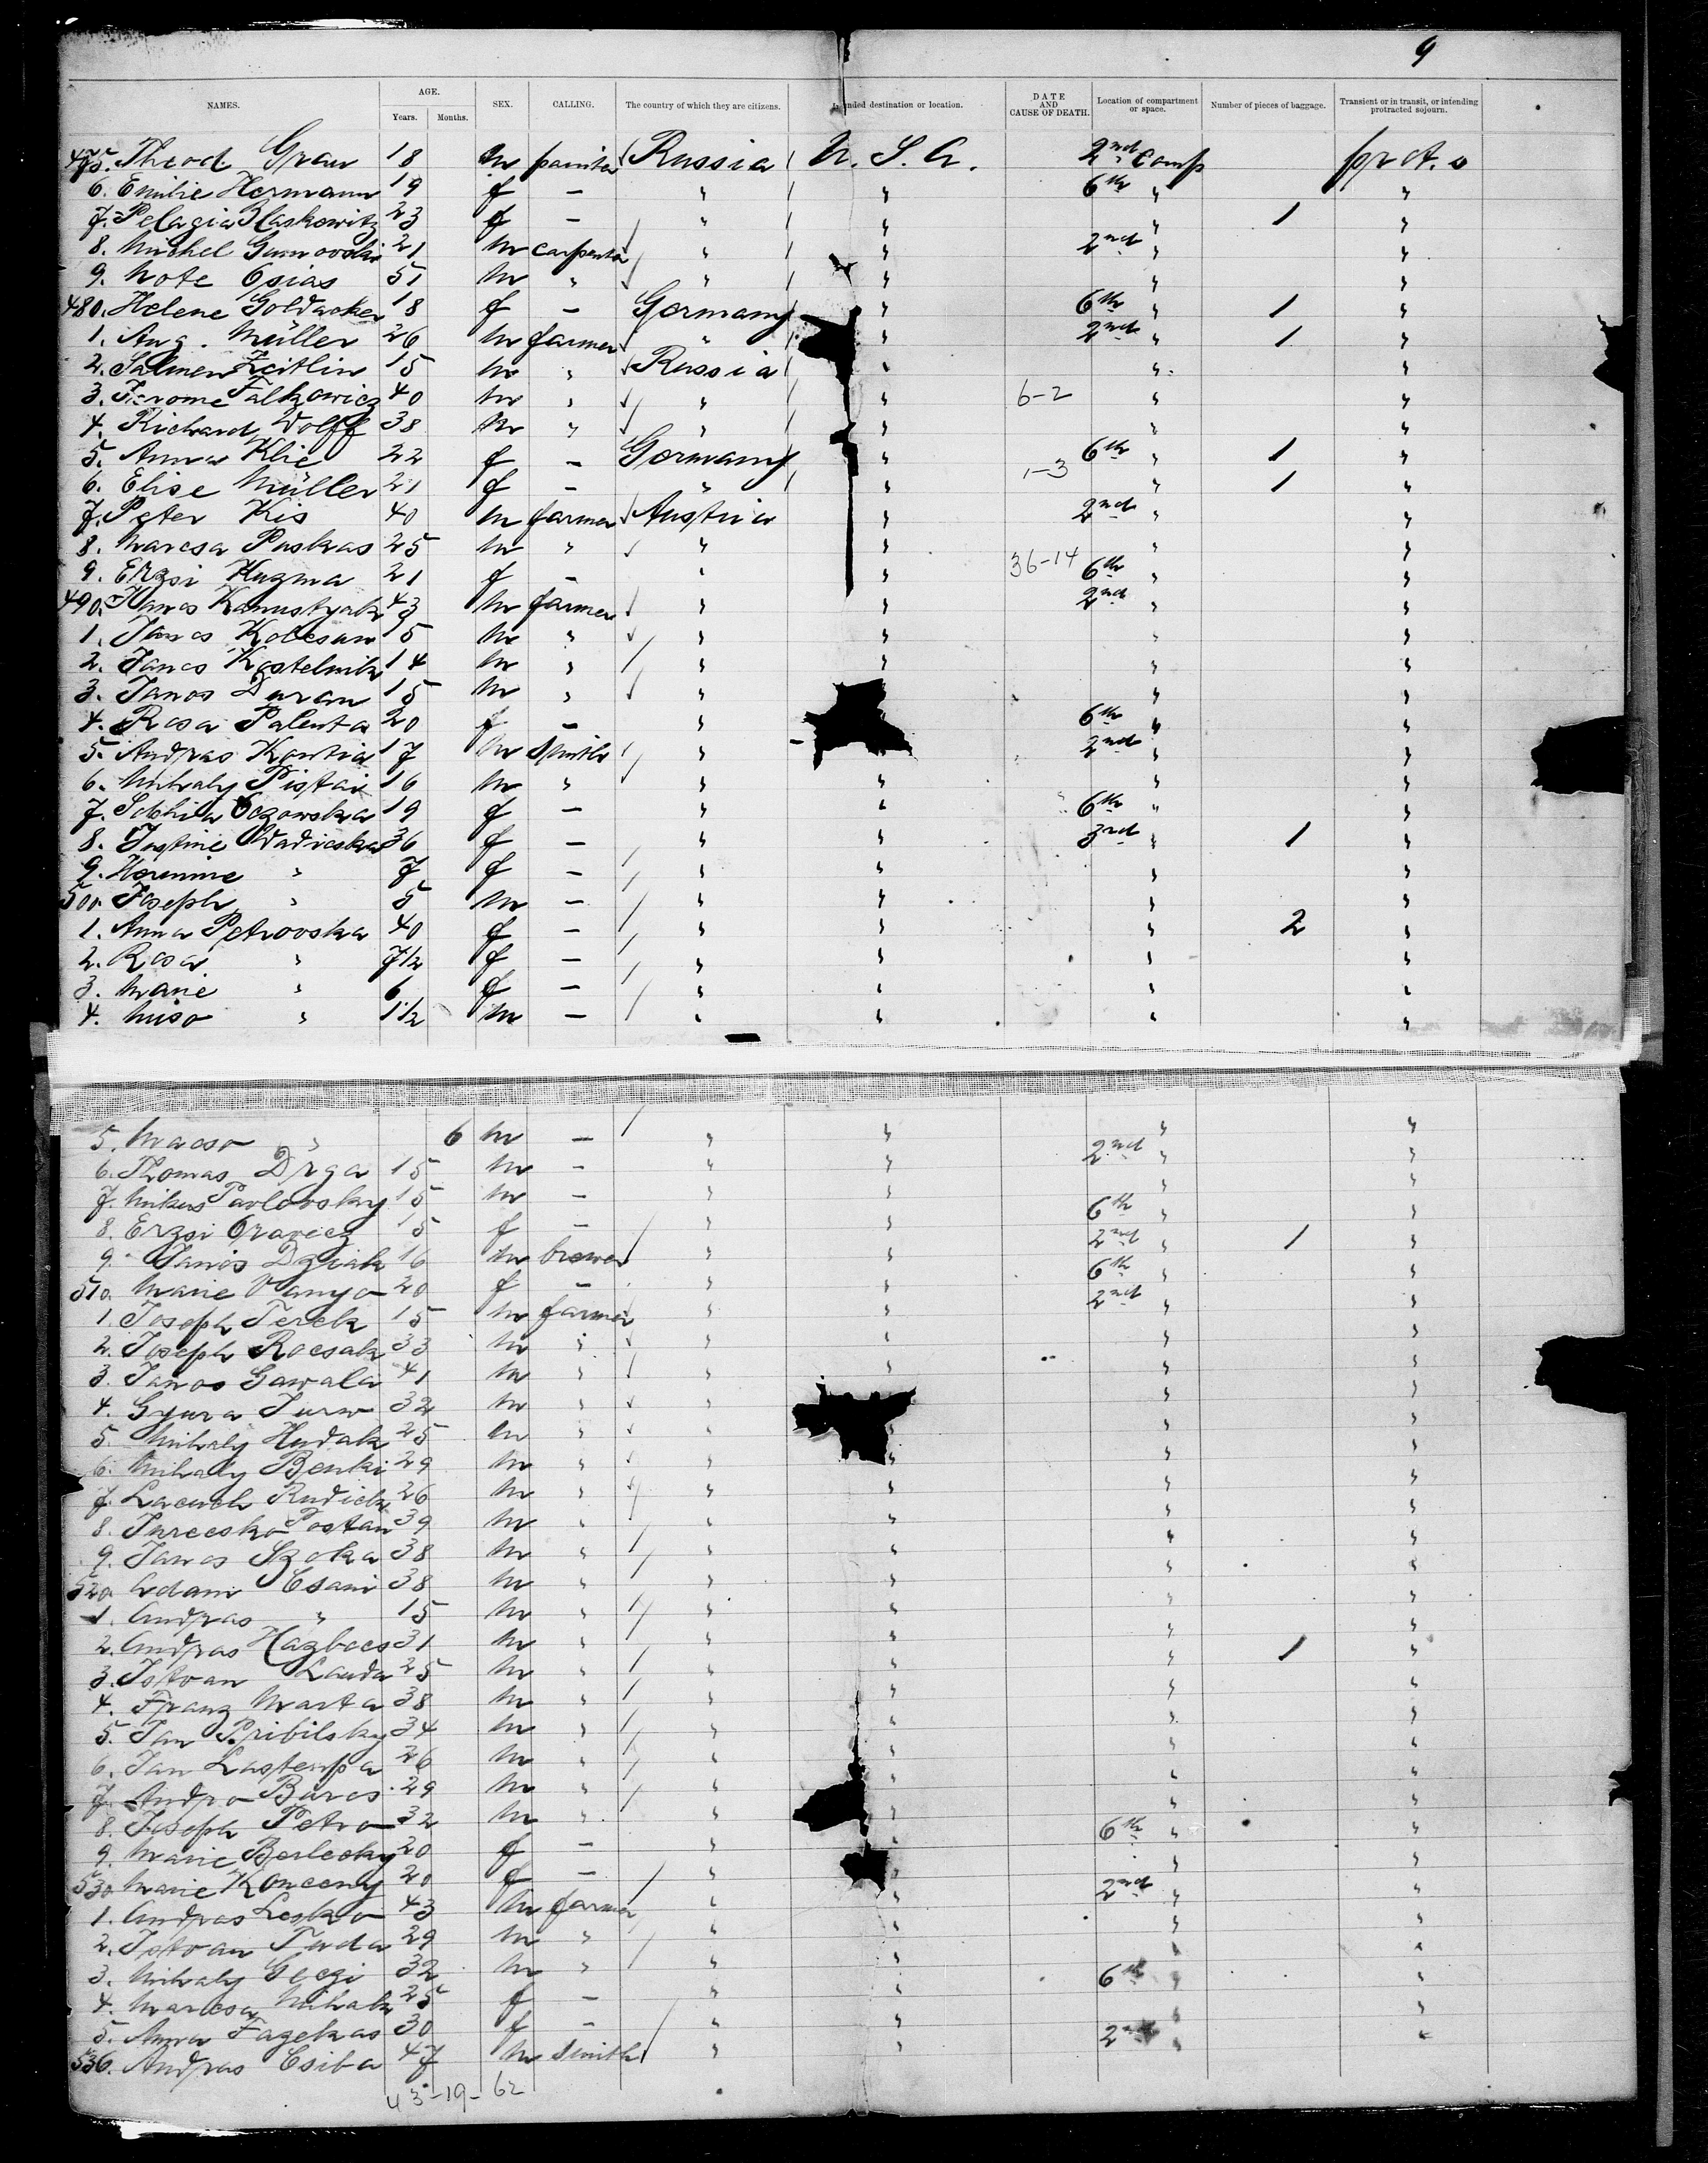 9
NAMES. AGE. Years. Months. SEX. CALLING. The country of which they are citizens. Intended destination or location. DATE AND CAUSE OF DEATH. Location of compartment or space. Number of pieces of baggage. Transient or in transit, or intending protracted sojourn.
475. Theod Grau 18 m painter Russia U. S. A. 2nd Comp prot. s
6. Emilie Hermann 19 f — " " 6th " "
7. Pelagia Blaskowitz 23 f — " " " 1 "
8. Michel Gumovski 21 m carpenter " " 2nd " "
9. Note Osias 51 m " " " " "
480. Helene Goldacker 18 f — Germany " 6th " 1 "
1. Aug. Müller 26 m farmer " " 2nd " 1 "
2. Salmen Zeitlin 15 m " Russia " " "
3. Jerome Falkowicz 40 m " " " 6-2 " "
4. Richard Wolff 38 m " " " " "
5. Anna Klie 22 f — Germany " 6th " 1 "
6. Elise Müller 21 f — " " 1-3 " 1 "
7. Peter Kis 40 m farmer Austria " 2nd " "
8. Marcsa Puskas 25 m " " " " "
9. Erzsi Kuzma 21 f — " " 36-14 6th " "
490. Janos Kanustyak 43 m farmer " " 2nd " "
1. Janos Kolesar 15 m " " " " "
2. Janos Kostelnik 14 m " " " " "
3. Janos Duran 15 m " " " " "
4. Rosa Palenta 20 f — " 6th " "
5. Andras Kontia 17 m smith " 2nd " "
6. Mihaly Pistai 16 m " " " " "
7. Sophia Oczowska 19 f — " " 6th " "
8. Justine Wadieska 36 f — " " 3rd " 1 "
9. Hermine " 7 f — " " " "
500. Joseph " 5 m — " " " "
1. Anna Petrovska 40 f — " " " 2 "
2. Rosa " 7 1/2 f — " " " "
3. Marie " 6 f — " " " "
4. Miso " 1 1/2 m — " " " "
5. Macso " 6 m — " " " "
6. Thomas Drga 15 m — " " 2nd " "
7. Mikus Pavlovsky 15 m — " " " "
8. Erzsi Oravecz 15 f — " " 6th " "
9. Janos Dziak 16 m brewer " " 2nd " 1 "
510. Marie Vanyo 20 f — " " 6th " "
1. Joseph Terek 15 m farmer " " 2nd " "
2. Joseph Rocsak 33 m " " " " "
3. Janos Gawala 41 m " " " " "
4. Gyura Jurw 32 m " " " "
5. Mihaly Hudak 25 m " " " " "
6. Mihaly Benki 29 m " " " " "
7. Rudick 26 m " " " " "
8. Jurecsko Postan 39 m " " " " "
9. Janos Szoka 38 m " " " " "
520. Adam Csani 38 m " " " " "
1. Andras " 15 m " " " " "
2. Andras Hazbocs 31 m " " " " 1 "
3. Istvan Lauda 25 m " " " " "
4. Franz Marta 38 m " " " " "
5. Jan Pribilsky 34 m " " " " "
6. Jan Lastempa 26 m " " " " "
7. Andro Baros 29 m " " " " "
8. Joseph Petro 32 m " " " " "
9. Marie Berlecky 20 f — " " 6th " "
530. Marie Konceny 20 f — " " " "
1. Andras Lesko 43 m farmer " " 2nd " "
2. Istvan Tuda 29 m " " " " "
3. Mihaly Geczi 32 m " " " " "
4. Marcsa Mihalk 25 f — " " 6th " "
5. Anna Fazekas 30 f — " " " "
536. Andras Csiba 47 m smith " " 2nd " "
43-19-62